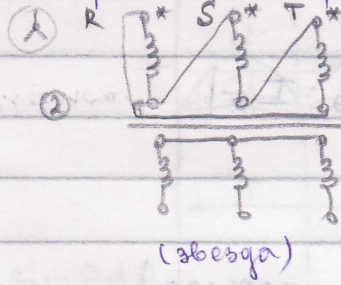 1 R * S * T *
2
(звезда)